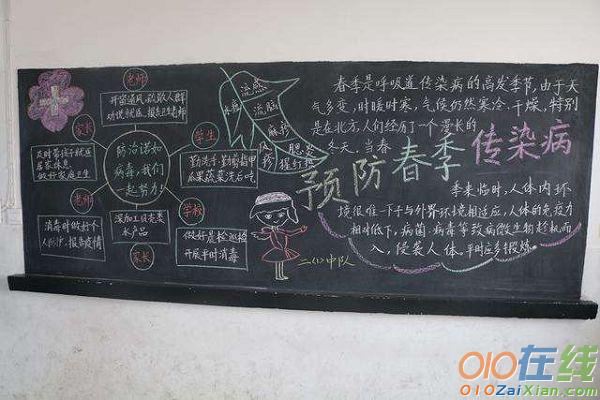 老师
开窗通风、疏散人群
对说就医、报告卫生部
家长
及时带孩子就医
居家休息
做好家庭卫生
防治诺如
病毒,我们
一起努力!
学生
勤洗手、勤剪指甲
瓜果蔬菜洗后吃
老师
消毒时做好个
人防护、报告疫情
深加工贝壳类
水产品
家长
学校
做好晨检巡检
开展平时消毒
流感
水痘
流脑
麻疹
风疹
腮炎
猩红热
春季是呼吸道传染病的高发季节,由于天
气多变,时暖时寒,气候仍然寒冷、干燥,特别
是在北方,人们经历了一个漫长的
冬天,当春
预防春季传染病
季来临时,人体内环
境很难一下子与外界环境相适应,人体的免疫力
相对低下,病菌、病毒等致病微生物趁机而
入,侵袭人体。平时应多锻炼。
二(1)中队
010在线
010ZaiXian.com